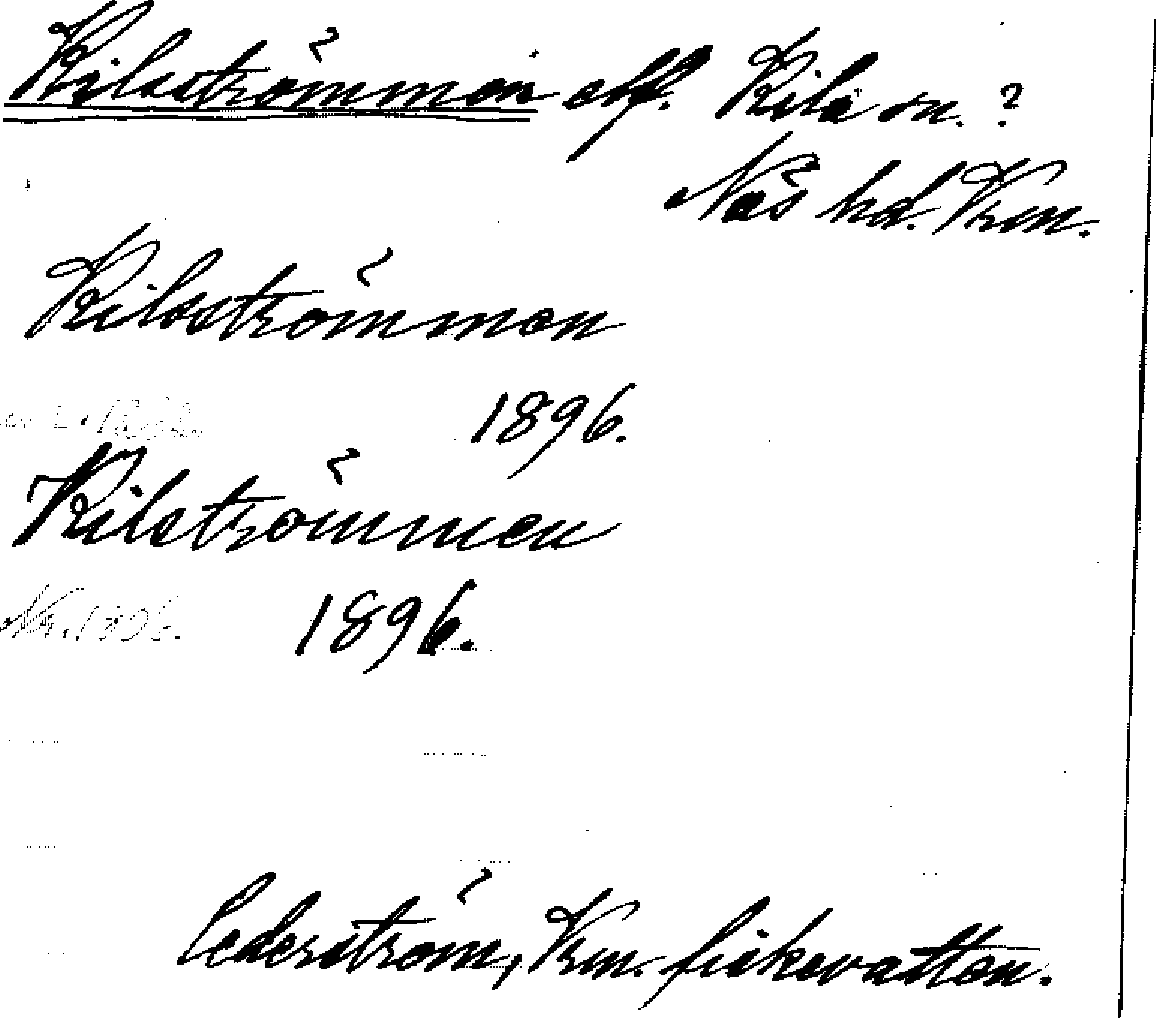 Kilsströmmen elf. Kila sn. ?
Näs hd. Vrm.
Kilsströmmen
1896.
Kilströmmen
1896.
Cederström, Vrm. fiskevatten.